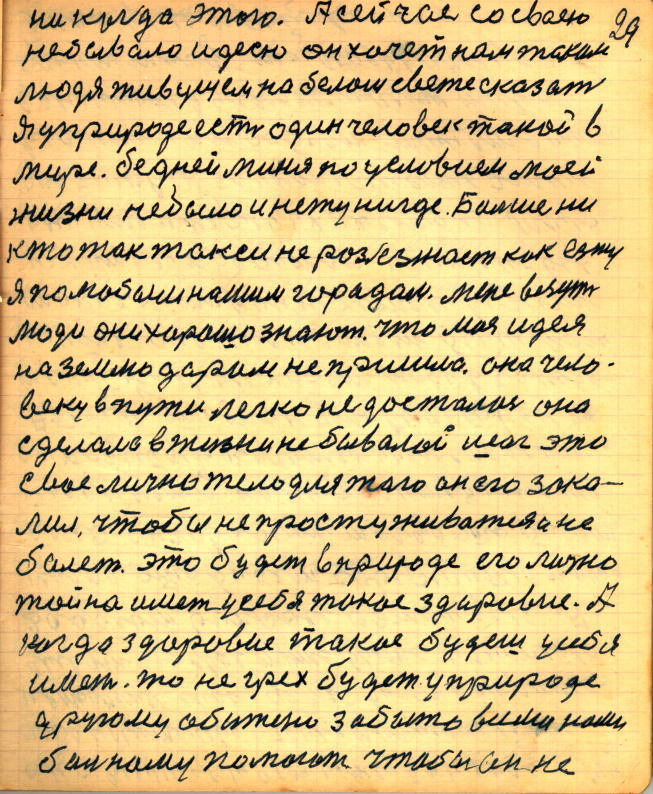 29
никогда этого. А сейчас со своею
небывало идеею он хочет нам таким
людям живущем на белом свете сказат
я у природе есть один человек такой в
мире. бедней миня по условием моей
жизни небыло и нету нигде. Болше ни
кто так такси не розезжает как езжу
я по нашим горадам. мене везут
люди они хорошо знают. что моя идея
на землю даром не пришла. она чело-
веку в пути легко не досталас она
сделала в жизни небывалой шаг это
свое лично тело для таго он его зака-
лил, чтобы не простуживатся и не
болет. это будет в природе его лично
тайна имет у себя такое здоровие. А
когда здоровие такое будеш у себя
имет. то не грех будет у природе
другому обижено забыто
болному помогат чтобы он не